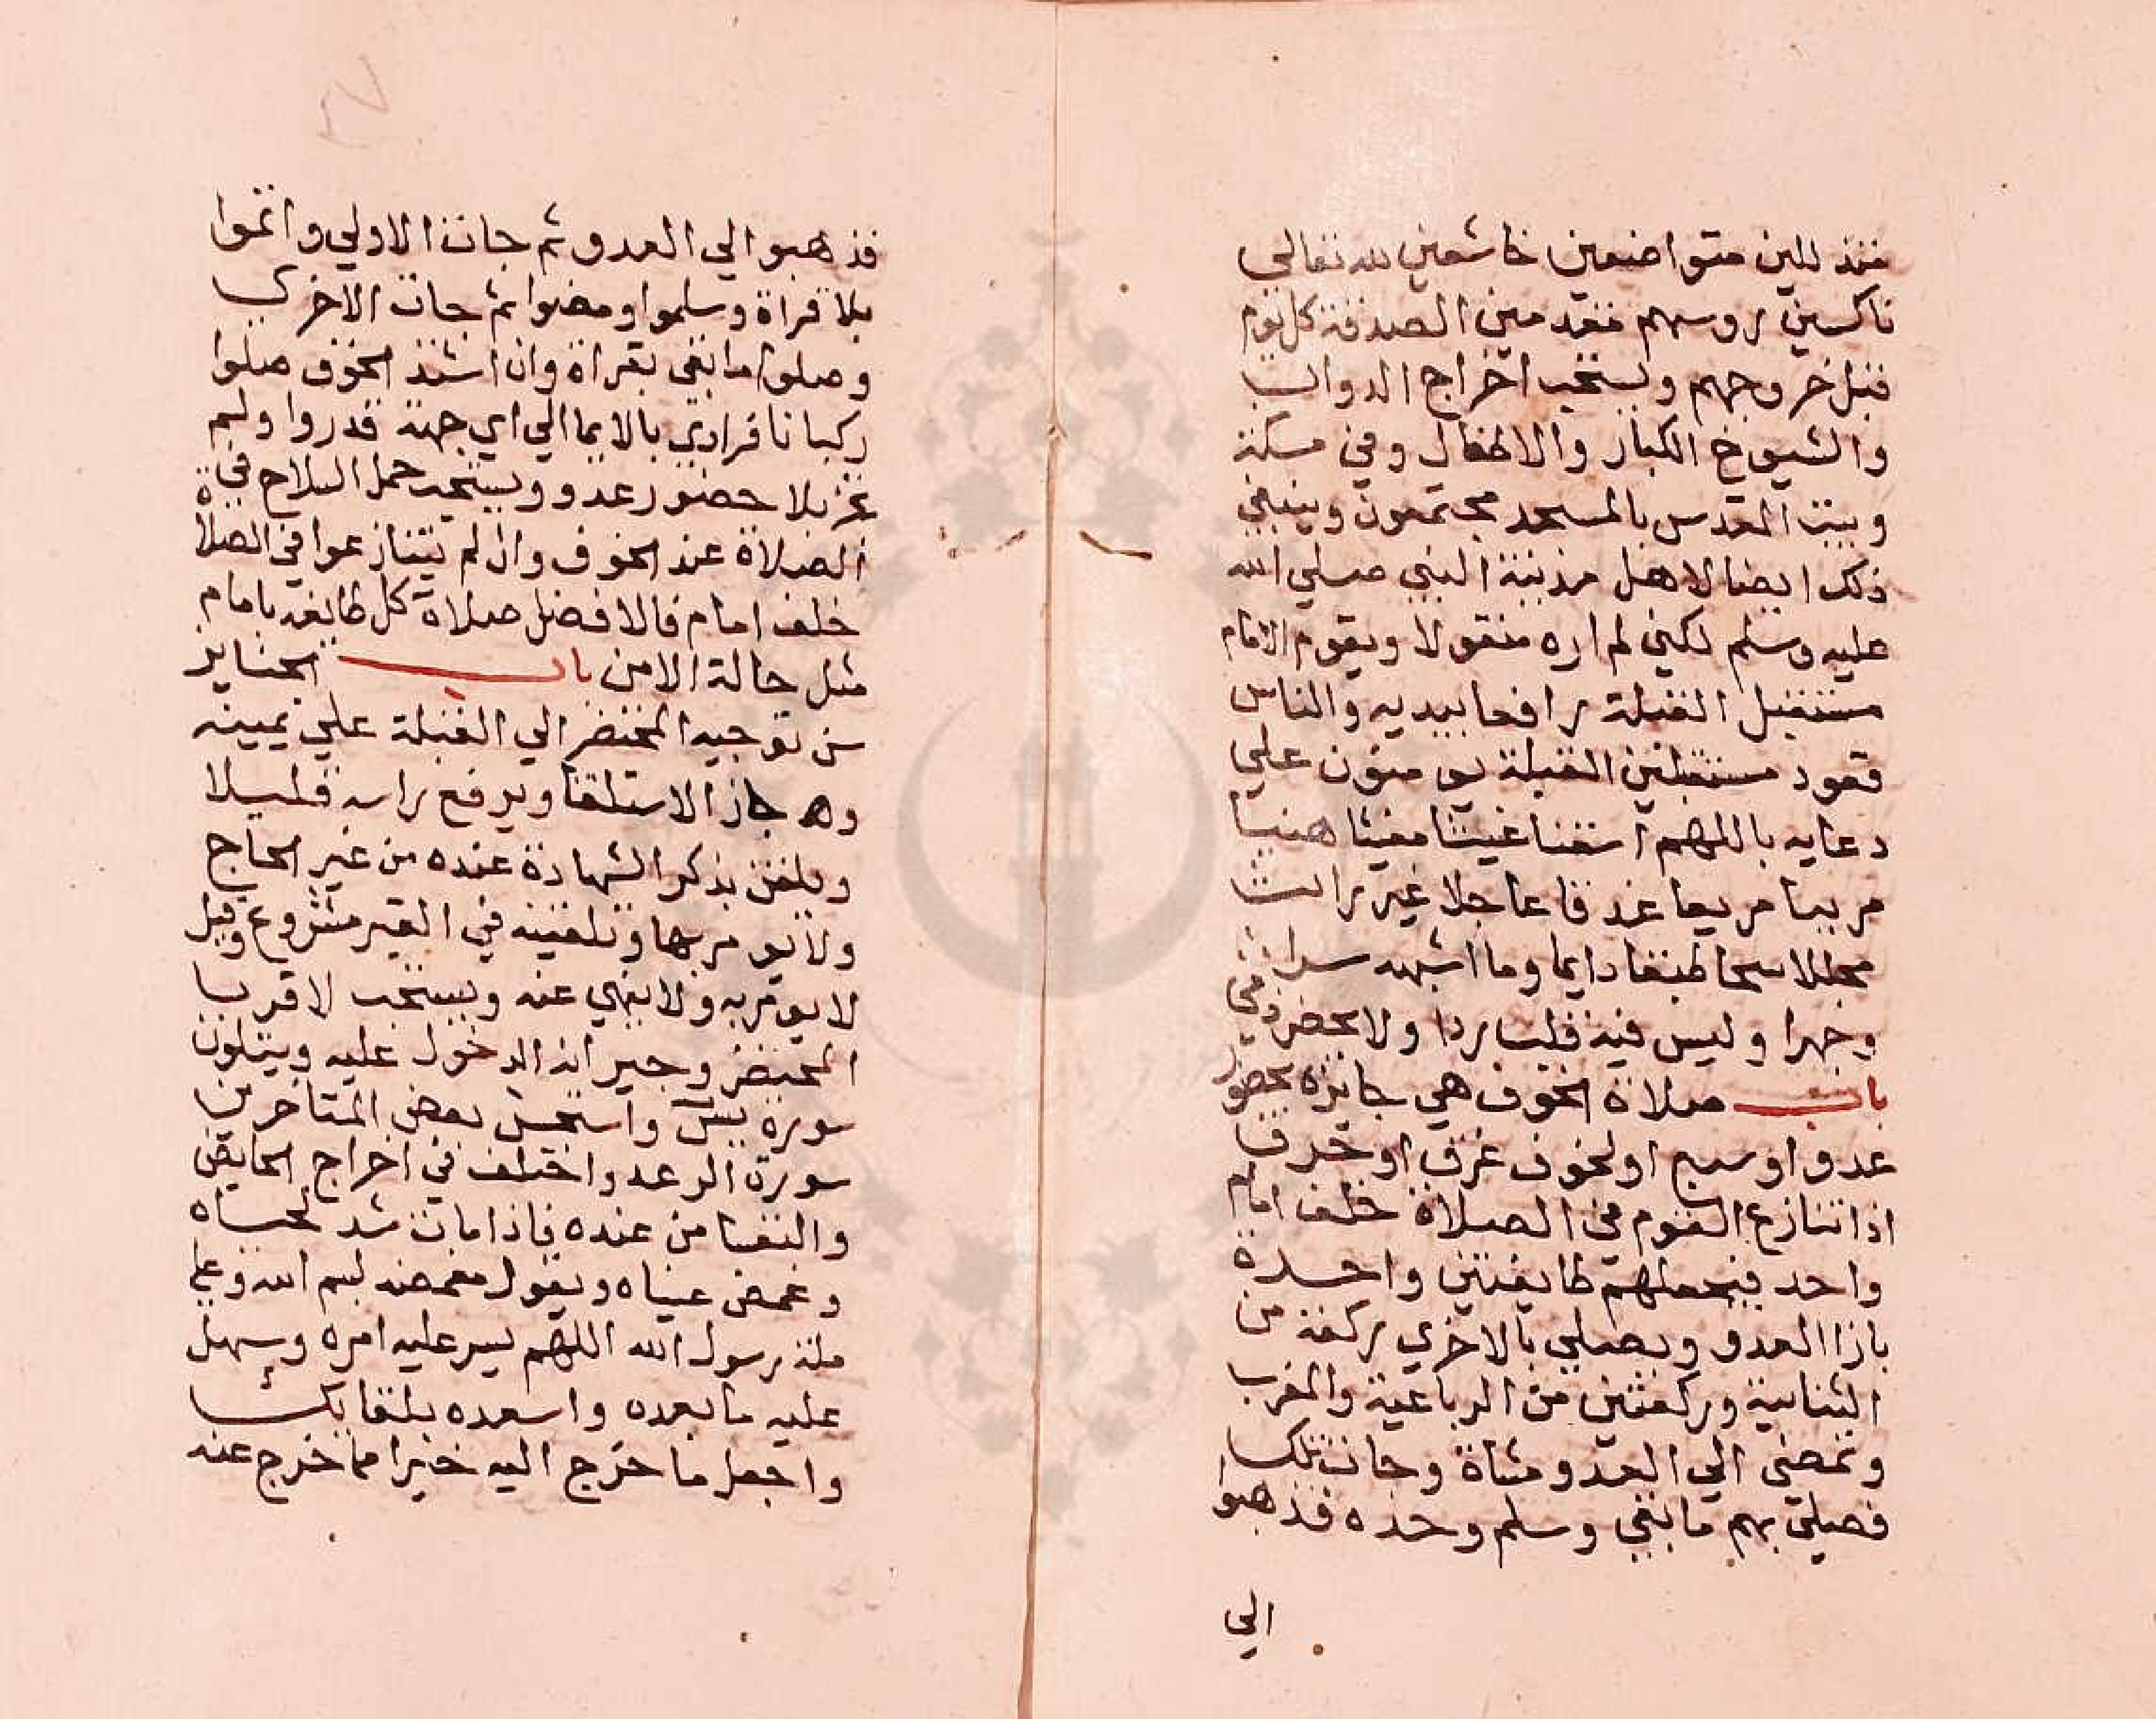 متذللين متواضعين خاشعين لله تعالي
ناكسين روسهم مقدمين الصدقة كل يوم
قبل خروجهم ويستحب اخراج الدواب
والشيوخ الكبار والاطفال وفي مكة
وبيت المقدس بالمسجد يجتمعون وينبغي
ذلك ايضا لاهل مدينة النبي صلي الله
عليه وسلم لكني لم اره منقولا ويقوم الامام
مستقبل القبلة رافعا يديه والناس
قعود مستقبلين القبلة يومنون علي
دعايه باللهم اسقنا غيثا مغيثا هنييا
مرييا مريعا غدقا عاجلا غير رايث
مجللا سحا طبقا دايما وما اشبهه سرا
وجهرا وليس فيه قلب ردا ولا يحضره ذمي
باب صلاة الخوف هي جايزة بحضور
عدو او سبع او لخوف غرق او حرق
اذا تنازع القوم في الصلاة خلف امام
واحد فيجعلهم طايفتين واحدة
بازا العدو ويصلي بالاخري ركعة من
الثنايية وركعتين من الرباعية والمغرب
وتمضي الي العدو مشاة وجات تلك
فصلي بهم ما بقي وسلم وحده فذهبوا
الي
فذهبوا الي العدو ثم جات الاولي واتموا
بلا قراة وسلموا ومضوا ثم جات الاخري
وصلوا ما بقي بقراة وان اشتد الخوف صلوا
ركبانا فرادي بالايما الي اي جهة قدروا ولم
تجز بلا حضور عدو ويستحب حمل السلاح في
الصلاة عند الخوف وان لم يتنازعوا في الصلاة
خلف امام فالافضل صلاة كل طايفة بامام
مثل حالة الامن باب الجنايز
سن توجيه المحتضر الي القبلة علي يمينه
وهـ جاز الاستلقا ويرفع راسه قليلا
ويلقن بذكر الشهادة عنده من غير الحاح
ولا يومر بها وتلقينه في القبر مشروع وقيل
لا يومر به ولا ينهي عنه ويستحب لاقربا
المحتضر وجيرانه الدخول عليه ويتلون
سورة يس واستحسن بعض المتاخرين
سورة الرعد واختلف في اخراج الحايض
والنفسا من عنده فاذا مات شد لحياه
وغمض عيناه ويقول مغمضه بسم الله وعلي
ملة رسول الله اللهم يسر عليه امره وسهل
عليه ما بعده واسعده بلقايك
واجعل ما خرج اليه خيرا مما خرج عنه